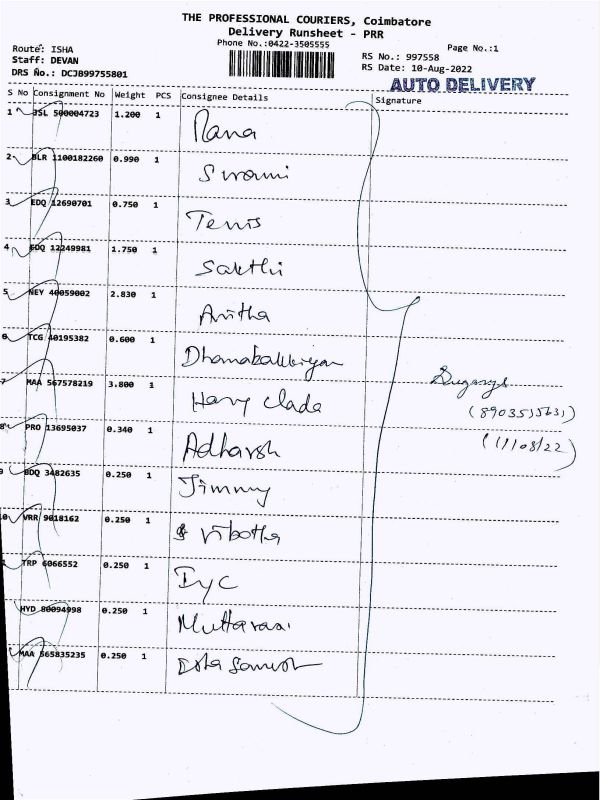 THE PROFESSIONAL COURIERS, Coimbatore
Delivery Runsheet - PRR
Phone No.:0422-3505555
Page No.:1
Route: ISHA
RS No.: 997558
Staff: DEVAN
RS Date: 10-Aug-2022
DRS No.: DCJB99755801
AUTO DELIVERY
S No Consignment No Weight PCS Consignee Details Signature
1 JSL 500004723 1.200 1 Rana
2 BLR 1100182260 0.990 1 Swami
3 EDQ 12690701 0.750 1 Tenis
4 EDQ 12249981 1.750 1 Sakthi
5 NEY 40059002 2.830 1 Anitha
6 TCG 40195382 0.600 1
7 MAA 567578219 3.800 1 Hany Clada
(8903515631)
8 PRO 13695037 0.340 1 Adharsh
(11/08/22)
9 BDQ 3482635 0.250 1 Jimmy
10 VRR 9018162 0.250 1
TRP 6066552 0.250 1 Iyc
HYD 80094998 0.250 1
MAA 565835235 0.250 1